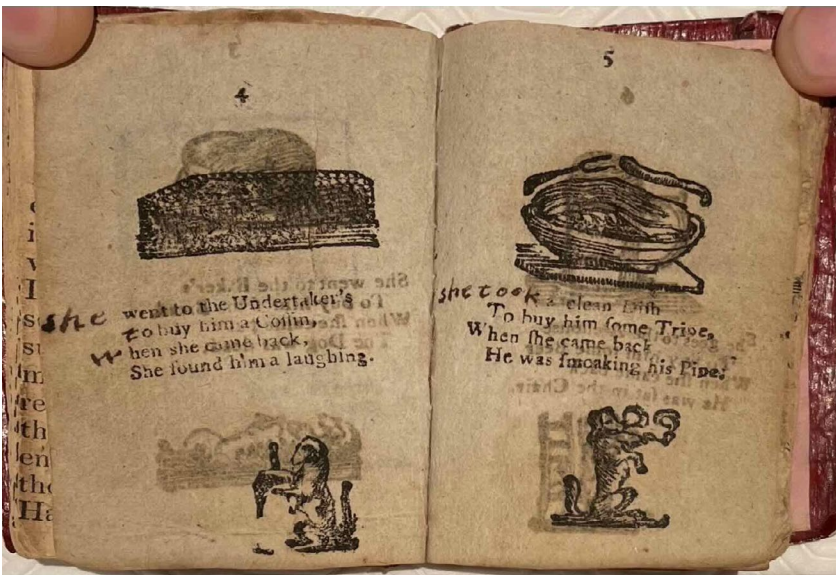 4
she went to the Undertaker's
To buy him a Coffin,
When she came back,
She found him a laughing.
5
she took a clean Dish
To buy him ſome Tripe,
When ſhe came back
He was ſmoaking his Pipe: